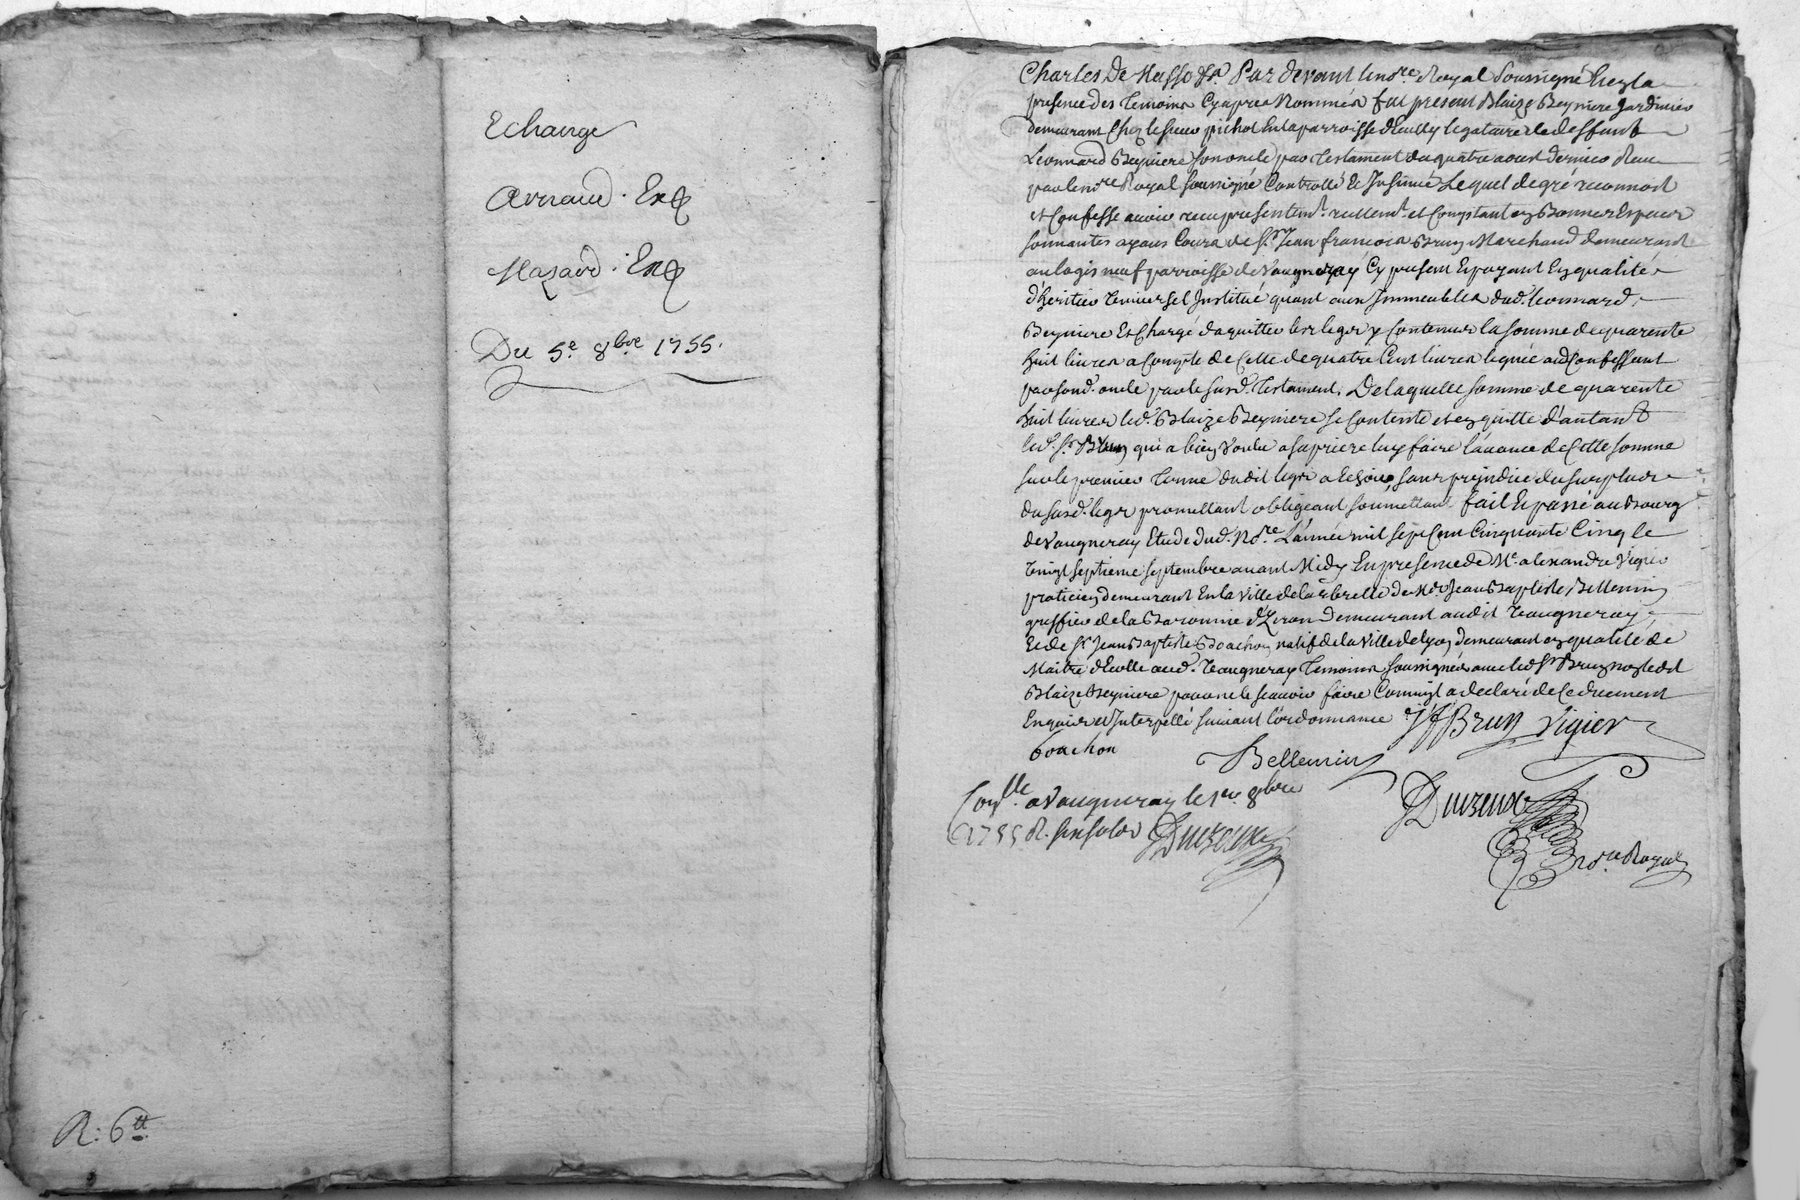 Echange
Arnaud. Et
Mazard. Et
Du 5e. 8bre 1755.
R: 6tt
Par devant le no.re Royal soussigné En la
presence des temoins cy apres nommés fut present Blaize Beyniere jardinier
demeurant chez le sieur pichot En la parroisse d'Eculy legataire de deffunt
Leonnard Beyniere son oncle par testament du quatre aoust dernier Receu
par le no.re Royal soussigné Controllé et Insinué Lequel de gré reconnoit
et Confesse avoir receu presentem.t reellem.t et Comptant en Bonnes Especes
sonnantes ayant Cours de s.r Jean françois Brun Marchand demeurant
au logis neuf parroisse de Vaugneray Cy present Et payant En qualité
d'heritier universel Institué quant aux Immeubles dud. leonnard
Beyniere Et Chargé d'aquitter les legs y Contenus la somme de quarente
huit livres a Compte de Celle de quatre Cent livres leguée aud Confessant
par sond. oncle par le susd. testament. De laquelle somme de quarente
huit livres led. Blaize Beyniere se Contente et en quitte d'autant
led. s.r Brun qui a bien voulu a sa priere luy faire l'avance de Cette somme
sur le premier terme dudit legs a Echoir, sans prejudice du surplus
du susd. legs promettant obligeant soumettant fait Et passé au Bourg
de Vaugneray Etude dud. No.re L'année mil sept Cent Cinquante Cinq le
vingt septieme septembre avant Midy En presence de M.e alexandre Vigier
praticien demeurant En la Ville de De M.e Jean Baptiste Bellemin
greffier de la Baronnie d'Yzeron Demeurant audit Vaugneray
Et de s.r Jean Baptiste Boachon natif de la Ville de Lyon demeurant en qualité de
Maitre d'Ecolle aud. Vaugneray temoins soussignés avec led s.r Brun non ledit
Blaize Beyniere pour ne le scavoir faire Comme il a declaré de Ce duement
Enquis et Interpellé suivant l'ordonnance JfBrun Vigier
boachon
Bellemin
Con.lle a Vaugneray le 1er. 8bre
1755 R. six sols Duvzeux
Duvzeux
no.re Royal